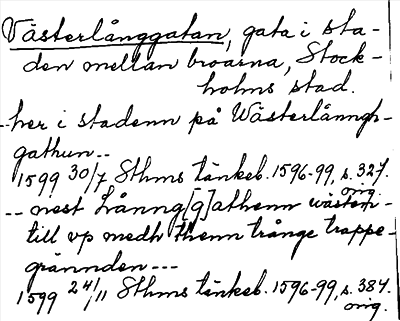 Västerlånggatan, gata i sta-
den mellan broarna, Stock-
holms stad.
--her i stadenn på Wästerlånngh-
gathun--
1599 30/7 Sthms tänkeb. 1596-99, s. 327.
orig.
-- nest Lånng[g]athenn wästen-
till vp medh thenn trånge trappe-
grännden---
1599 24/11 Sthms tänkeb. 1596-99, s. 384.
orig.